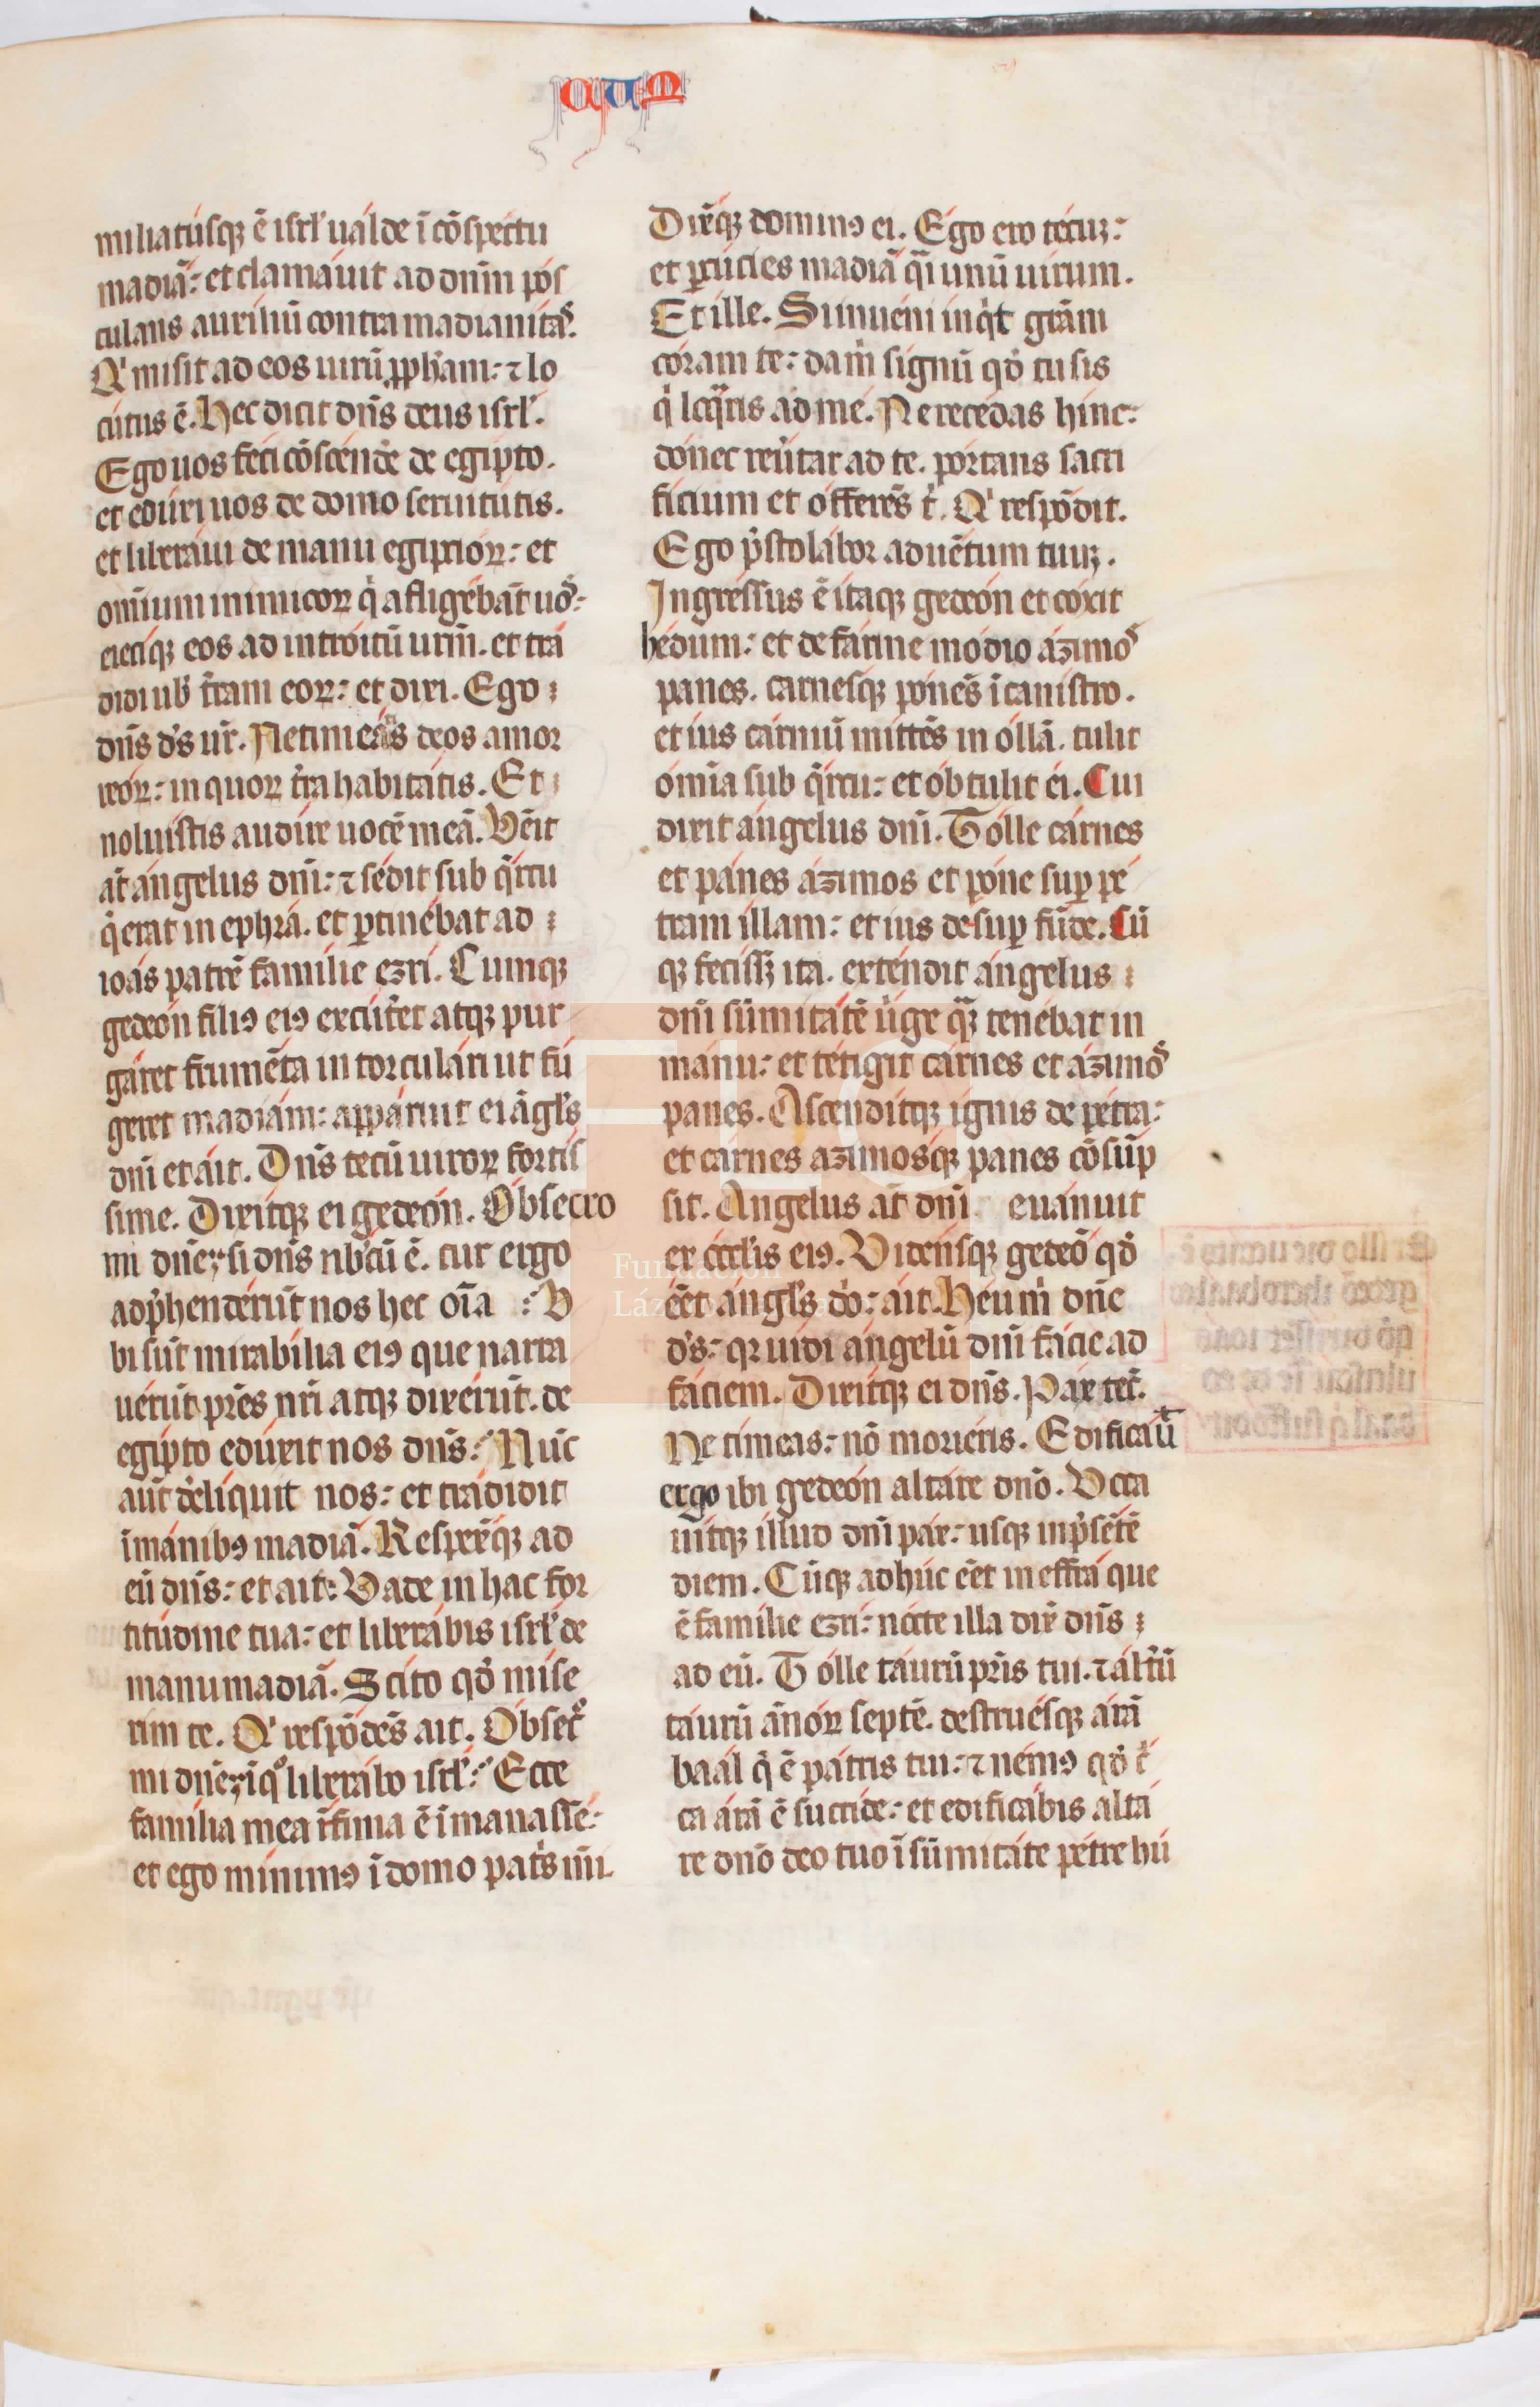 miliatusq; ē isrl' ualde ī cōspectu
madiā: et clamauit ad dnm̄ pos
culans auxiliū contra madianitas.
Qi misit ad eos uirū ꝓph̄am: ⁊ lo
cutus ē. Hec dicit dn̄s deus isrl'.
Ego uos feci cōscend̄e de egipto.
et eduxi uos de domo seruitutis.
et liberaui de manu egiptioꝝ: et
omīum inimicoꝝ qi afligebāt uos:
eieciq; eos ad introitū urm̄. et tra
didi uob' t̄ram eoꝝ: et dixi. Ego
dn̄s d's ur̄. Ne timeatis deos amor
reoꝝ: in quoꝝ t̄ra habitatis. Et
noluistis audire uocē meā. Vēit
at̄ angelus dn̄i: ⁊ sedit sub q̄rcu
q̄ erat in ephra. et ꝑtinebat ad
ioas patrē familie ezri. Cumq;
gedeon filiꝯ eiꝯ excut̄et atq; pur
garet frumēta in torculari ut fu
geret madiam: apparuit ei āgl's
dn̄i et ait. Dn̄s tecū uiroꝝ fortis
sime. Dixitq; ei gedeon. Obsecro
mi dn̄e; si dn̄s nb'cū ē. cur ergo
adp̄henderūt nos hec oīa : V
bi sūt mirabilia eiꝯ que narra
uerūt pr̄es nr̄i atq; dixerūt. de
egipto eduxit nos dn̄s: Nūc
aūt d̄eliquit nos: et tradidit
ī manibꝯ madiā. Respex̄q; ad
eū dn̄s: et ait: Vade in hac for
titudine tua: et liberabis isrl' de
manu madiā. Scito qd̄ mise
rim te. Qi respōdēs ait. Obsecro
mi dn̄e; ī qo liberabo isrl': Ecce
familia mea īfima ē ī manasse:
et ego minimꝯ ī domo pat's mi.
Dix̄q; dominꝯ ei. Ego ero tecuꝫ:
et ꝑcucies madiā q̄i unū uirum.
Et ille. Si inueni inq̄t grām
coram te: da m̄ signū qd̄ tu sis
q̄ loq̄ris ad me. Ne recedas hinc:
donec reūtar ad te. portans sacri
ficium et offerēs t̄. Qi respōdit.
Ego p̄stolabor aduētum tuuꝫ.
Ingressus ē itaq; gedeon et coxit
hedum: et de farine modio azimos
panes. carnesq; ponēs ī canistro.
et ius carniū mittēs in ollā. tulit
omīa sub q̄rcu: et obtulit ei. Cui
dixit angelus dn̄i. Tolle carnes
et panes azimos et pone suꝑ pe
tram illam: et ius desuꝑ fūde. Cū
q; fecissꝫ ita. extendit angelus
dn̄i sūmitatē ūige quā tenebat in
manu: et tetigit carnes et azimos
panes. Ascenditq; ignis de petra:
et carnes azimosq; panes cōsūp
sit. Angelus at̄ dn̄i euanuit
ex ocul'is eiꝯ. Vidensq; gedeō qd̄
eēt angl's do: ait. Heu m̄ dn̄e
d's: qꝛ uidi angelū dn̄i facie ad
faciem. Dixitq; ei dn̄s. Pax tec̄.
Ne timeas: nō morieris. Edificaū
ergo ibi gedeon altare dn̄o. Voca
uitq; illud dn̄i pax: usq; in p̄sētē
diem. Cūq; adhuc eēt in effra que
ē familie ezri: nocte illa dix̄ dn̄s
ad eū. Tolle taurū pr̄is tui. ⁊ alt̄ū
taurū ānoꝝ septē. destruesq; arā
baal q̄ ē patris tui: ⁊ nemꝯ qd̄ c̄
ca arā ē succide: et edificabis alta
re dn̄o deo tuo ī sūmitate petre hu
Fundación
Láz